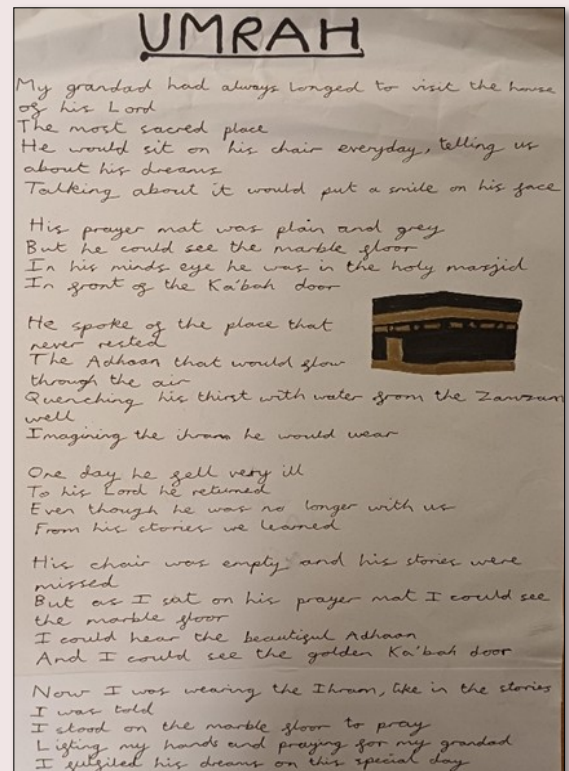 UMRAH
My grandad had always longed to visit the house
of his Lord
The most sacred place
He would sit on his chair everyday, telling us
about his dreams
Talking about it would put a smile on his face
His prayer mat was plain and grey
But he could see the marble floor
In his minds eye he was in the holy masjid
In front of the Ka'bah door
He spoke of the place that
never rested
The Adhaan that would flow
through the air
Quenching his thirst with water from the Zamzam
well
Imagining the ihram he would wear
One day he fell very ill
To his Lord he returned
Even though he was no longer with us
From his stories we learned
His chair was empty and his stories were
missed
But as I sat on his prayer mat I could see
the marble floor
I could hear the beautiful Adhaan
And I could see the golden Ka'bah door
Now I was wearing the Ihram, like in the stories
I was told
I stood on the marble floor to pray
Lifting my hands and praying for my grandad
I fulfiled his dreams on this special day